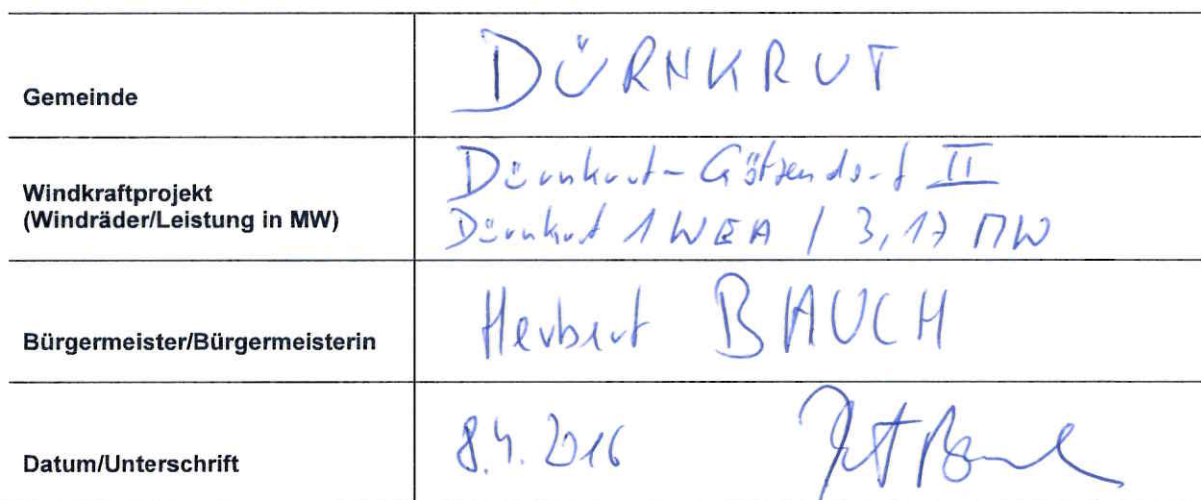 Gemeinde
DÜRNKRUT
Windkraftprojekt
(Windräder/Leistung in MW)
Dürnkrut-Götzendorf II
Dürnkrut 1 WEA / 3,17 MW
Bürgermeister/Bürgermeisterin
Herbert BAUCH
Datum/Unterschrift
8.4.2016